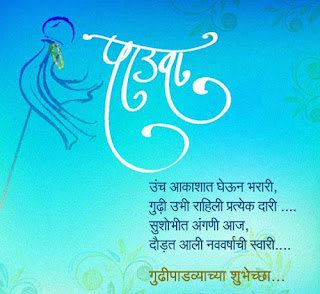 पाडवा
उंच आकाशात घेऊन भरारी,
गुढी उभी राहिली प्रत्येक दारी ....
सुशोभीत अंगणी आज,
दौड़त आली नववर्षाची स्वारी....
गुढीपाडव्याच्या शुभेच्छा...